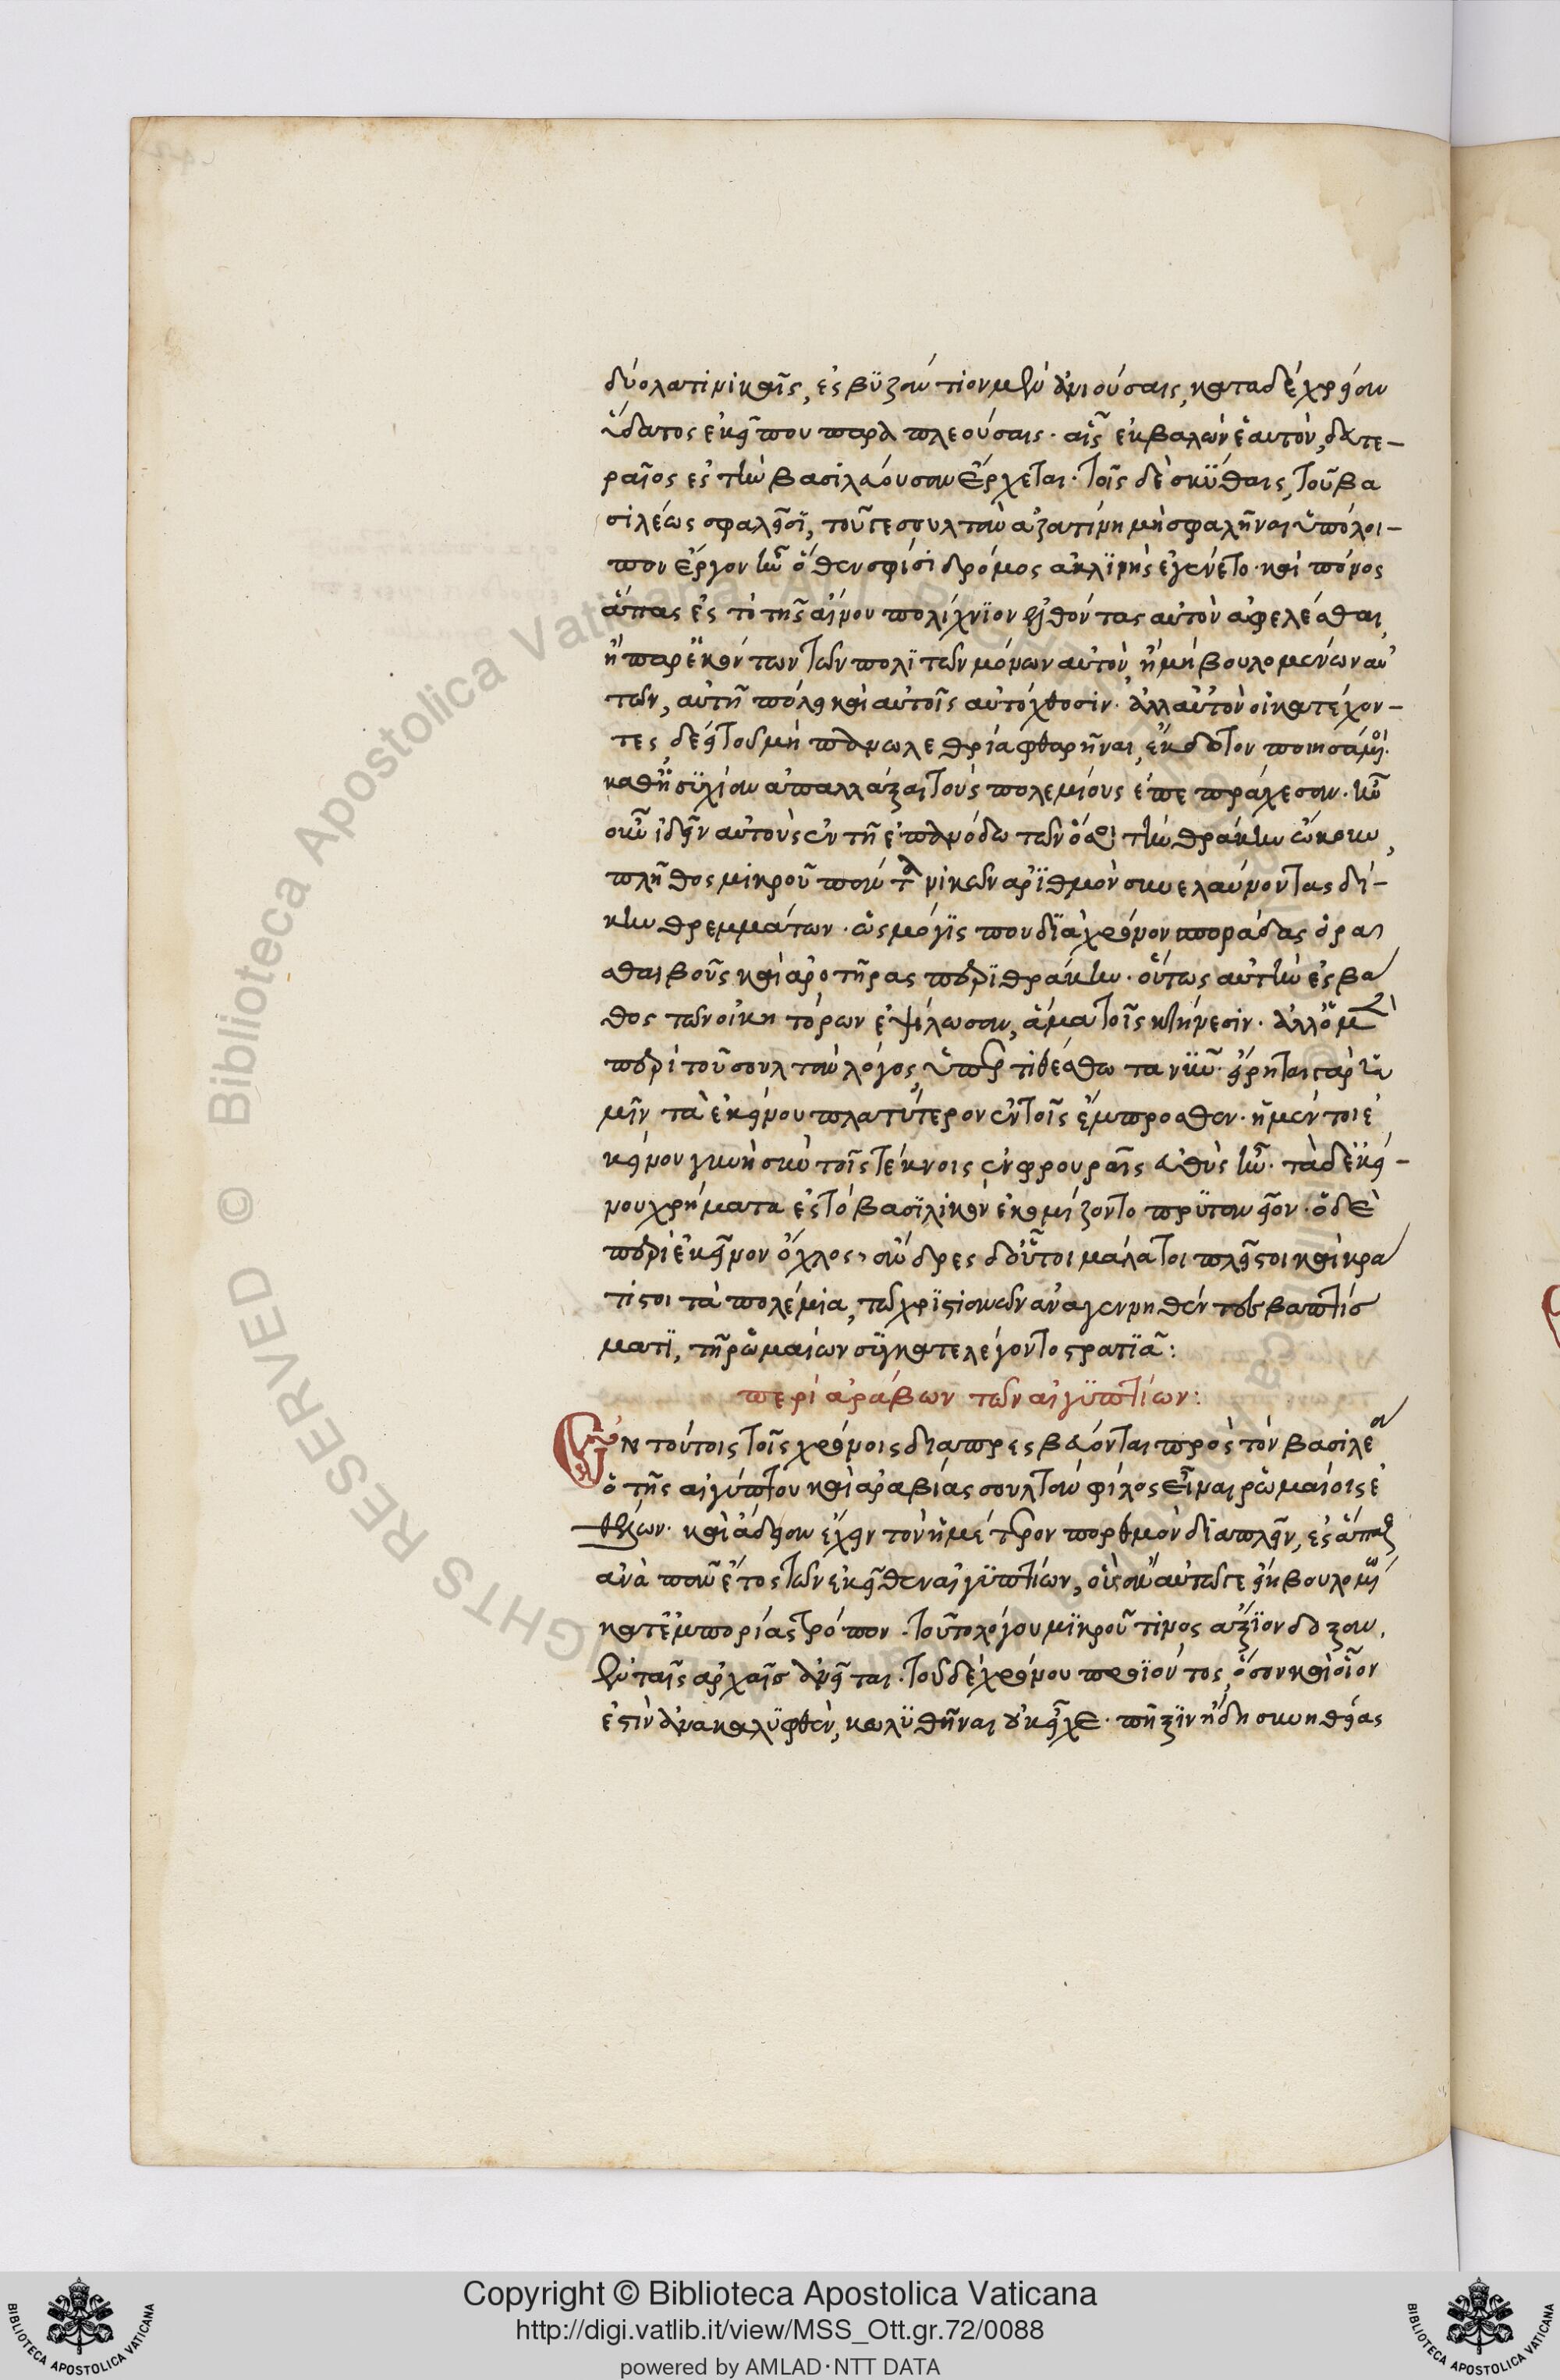 δύο λατινικαῖς, ἐς βυζάντιον μὲν ἀνιούσαις, κατὰ δὲ χρείαν
ὕδατος ἐκεῖ που παραπλεούσαις· αἷς ἐμβαλὼν ἑαυτὸν, δευτε-
ραῖος ἐς τὴν βασιλεύουσαν ἔρχεται· τοῖς δὲ σκύθαις, τοῦ βα
σιλέως σφαλεῖσι, τοῦ γε σουλτὰν ἀζατίνη μὴ σφαλῆναι ὑπόλοι-
πον ἔργον ἦν· ὅθεν σφίσι δρόμος ἀκλινὴς ἐγένετο· καὶ πόνος
ἅπας ἐς τὸ τῆς αἴνου πολίχνιον ἐλθόντας αὐτὸν ἀφελέσθαι,
ἢ παρεκόντων τῶν πολιτῶν μόνων αὐτὸν, ἢ μὴ βουλομένων αὐ
τῶν, αὐτῇ πόλει καὶ αὐτοῖς αὐτόχθοσιν· ἀλλ' αὐτὸν οἱ κατέχον-
τες, δέει τοῦ μὴ πανωλεθρία φθαρῆναι, ἔκδοτον ποιησάμενοι
καθ' ἡσυχίαν ἀπαλλάξαι τοὺς πολεμίους ἐπεπράχεσαν· ἦν
οὖν ἰδεῖν αὐτοὺς ἐν τῇ ἐπανόδω τῶν ὅσοι τὴν θράκην ᾤκουν,
πλῆθος μικροῦ πᾶν τ νικῶν ἀριθμὸν συνελαύνοντας δί-
κην θρεμμάτων· ὡς μόγις που διὰ χρόνον σποράδας ὁρᾶ
σθαι βοῦς καὶ ἀροτῆρας περὶ θράκην· οὕτως αὐτὴν ἐς βά
θος τῶν οἰκητόρων ἐψίλωσαν, ἅμα τοῖς κτήνεσιν· ἀλλ' ὁ μὲν
περὶ τοῦ σουλτὰν λόγος, ὑπερτιθέσθω τανῦν· εἴρηται γὰρ ἡ
μῖν τὰ ἐκείνου πλατύτερον ἐν τοῖς ἔμπροσθεν· ἡ μέντοι ἐ
κείνου γυνὴ σὺν τοῖς τέκνοις ἐν φρουραῖς εὐθὺς ἦν· τὰ δ' ἐκεί-
νου χρήματα ἐς τὸ βασιλικὸν ἐκομίζοντο πρυτανεῖον· ὁ δὲ
περὶ ἐκεῖνον ὄχλος, ἄνδρες δ' οὗτοι μάλα τοι πλεῖστοι καὶ κρά
τιστοι τὰ πολέμια, τῶ χριστιανῶν ἀναγεννηθέντες βαπτίσ
ματι, τῇ ῥωμαίων συγκατελέγοντο στρατιᾷ:
περὶ ἀράβων τῶν αἰγυπτίων:
Ἐν τούτοις τοῖς χρόνοις διαπρεσβεύονται πρὸς τὸν βασιλέα
ὁ τῆς αἰγύπτου καὶ ἀραβίας σουλτὰν φίλος εἶναι ῥωμαίοις ἐ
θέλων· καὶ ἄδειαν ἔχειν τὸν ἡμέτερον πορθμὸν διαπλεῖν, ἐς ἅπαξ
ἀνὰ πᾶν ἔτος τῶν ἐκεῖθεν αἰγυπτίων, οἷς ἂν αὐτῶ τε εἴη βουλομένω
κατ' ἐμπορίας τρόπον· τοῦτο λόγου μικροῦ τινος ἄξιον δόξαν,
ἐν ταῖς ἀρχαῖς ἀνεῖται· τοῦ δὲ χρόνου προϊόντος, ὅσον καὶ οἷον
ἐστὶν ἀνακαλυφθὲν, κωλυθῆναι οὐκ εἶχε· πῆξιν ἤδη συνηθείας